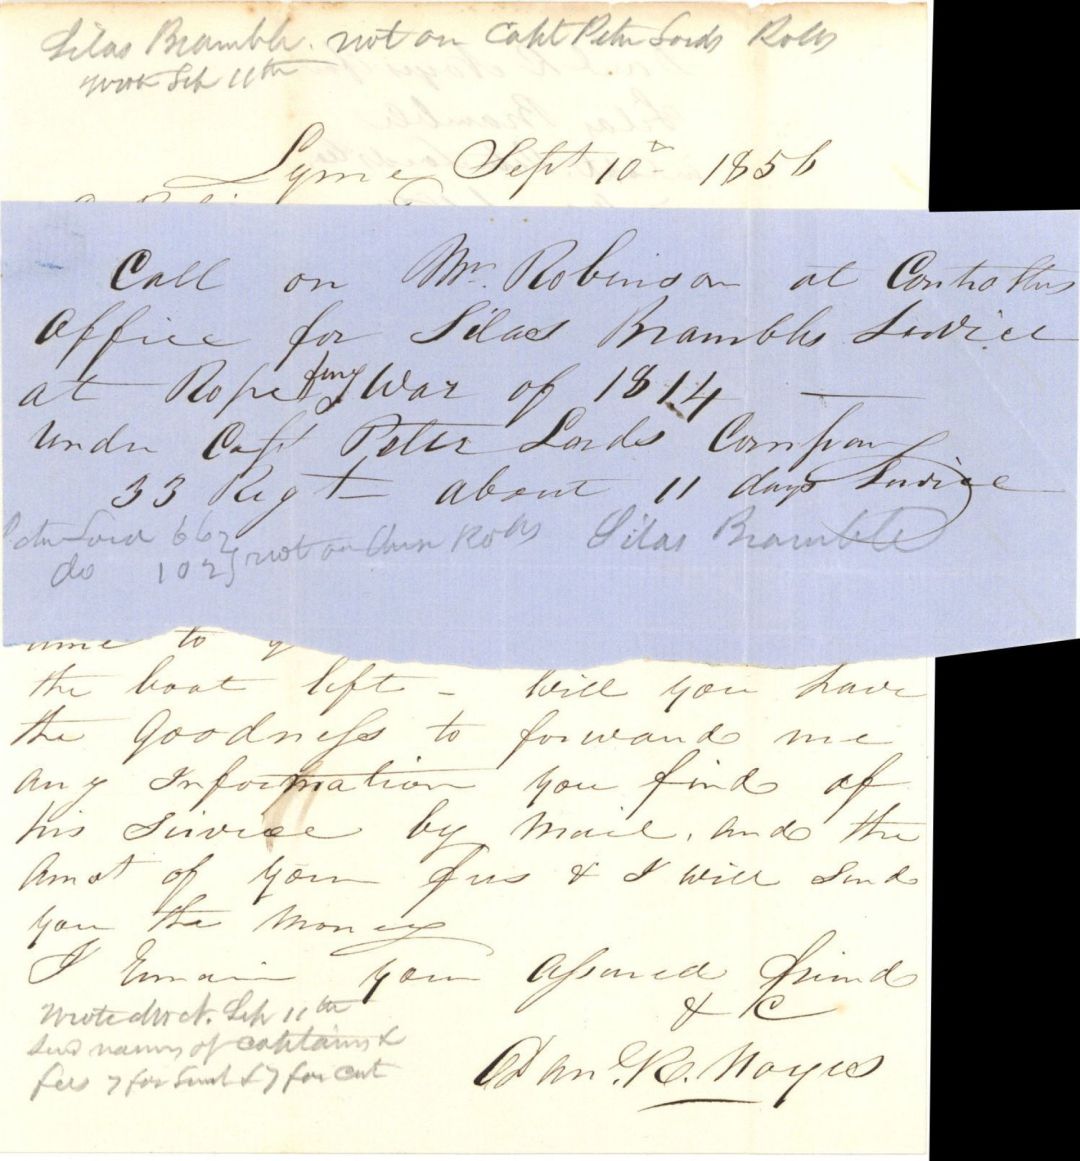 Silas Bramble. not on Capt Peter Lords Rolls
wrote Sep 11th
Lyme Sept 10th 1856
Call on Mr. Robinson at Controllers
Office for Silas Brambles Service
at Rope fery War of 1814 —
under Capt Peter Lords Company
33 Regt – about 11 days Service
Peter Lord 662
do 102 } not on their Rolls Silas Bramble
time to
the boat left – Will you have
the goodness to forward me
any Information you find of
his service by Mail, and the
Amot of your fees & I will send
you the Money
I Remain your assured friend
& C
Danl. R. Noyes
Wrote Sep 11th
names of captains &
fees 7 for & 7 for cert